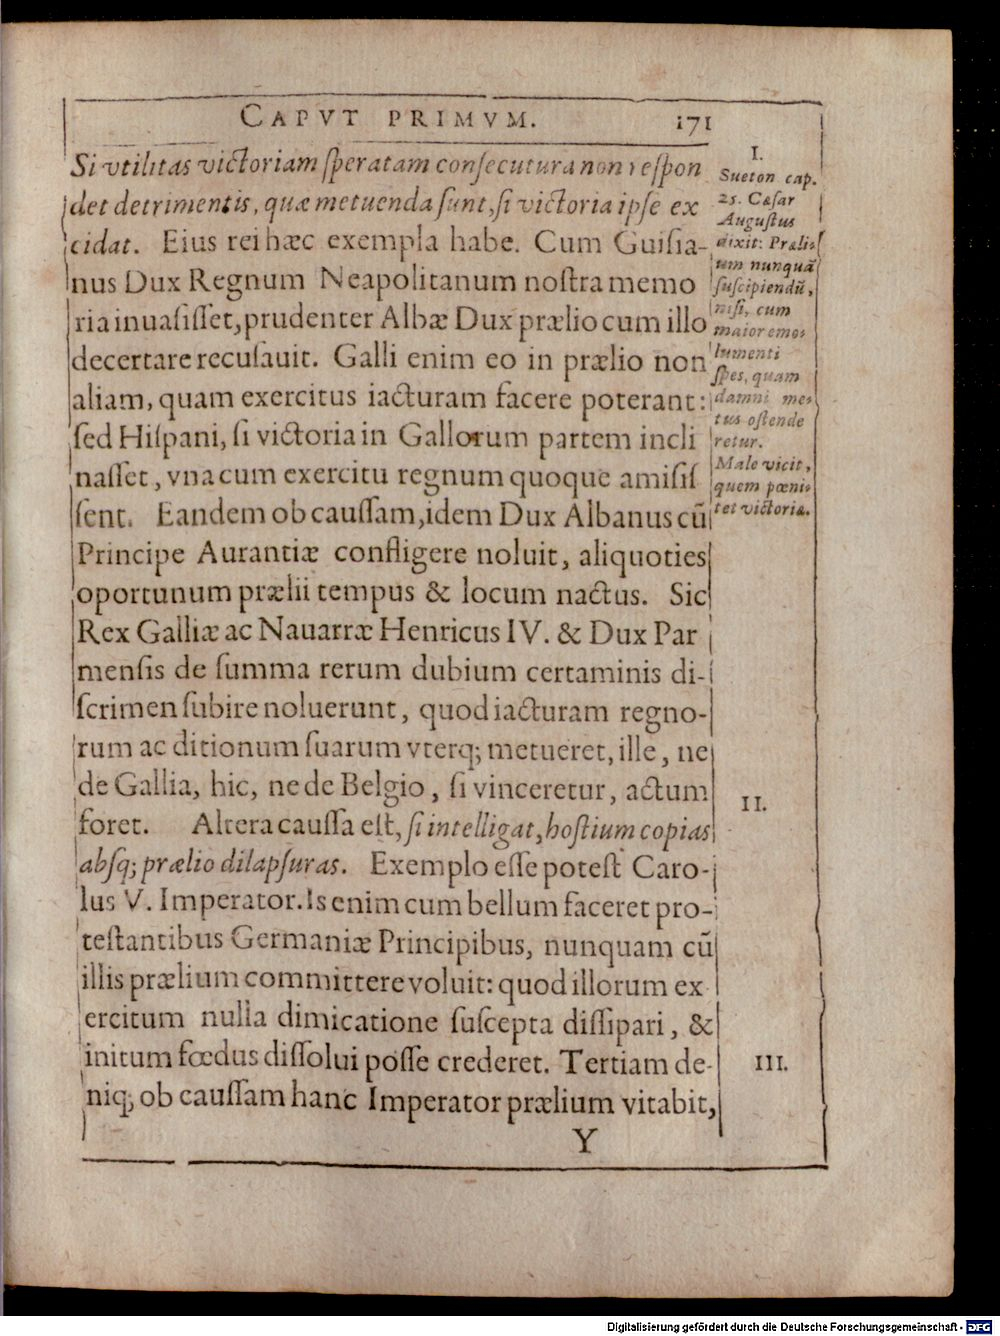 CAPVT PRIMVM. 171
Si vtilitas victoriam ſperatam conſecutura non reſpon
det detrimentis, quæ metuenda ſunt, ſi victoria ipſe ex
cidat. Eius rei hæc exempla habe. Cum Guiſia-
nus Dux Regnum Neapolitanum noſtra memo
ria inuaſiſſet, prudenter Albæ Dux prælio cum illo
decertare recuſauit. Galli enim eo in prælio non
aliam, quam exercitus iacturam facere poterant:
ſed Hiſpani, ſi victoria in Gallorum partem incli
naſſet, vna cum exercitu regnum quoque amiſiſ
ſent. Eandem ob cauſſam, idem Dux Albanus cū
Principe Aurantiæ confligere noluit, aliquoties
oportunum prælii tempus & locum nactus. Sic
Rex Galliæ ac Nauarræ Henricus IV. & Dux Par
menſis de ſumma rerum dubium certaminis di-
ſcrimen ſubire noluerunt, quod iacturam regno-
rum ac ditionum ſuarum vterq; metueret, ille, ne
de Gallia, hic, ne de Belgio, ſi vinceretur, actum
foret. Altera cauſſa eſt, ſi intelligat, hoſtium copias
abſq; prælio dilapſuras. Exemplo eſſe poteſt Caro-
lus V. Imperator. Is enim cum bellum faceret pro-
teſtantibus Germaniæ Principibus, nunquam cū
illis prælium committere voluit: quod illorum ex
ercitum nulla dimicatione ſuſcepta diſſipari, &
initum fœdus diſſolui poſſe crederet. Tertiam de-
niq; ob cauſſam hanc Imperator prælium vitabit,
Y
I.
Sueton cap.
25. Cæſar
Auguſtus
dixit: Præli-
um nunquā
ſuſcipiendū,
niſi, cum
maior emo-
lumenti
ſpes, quam
damni me-
tus oſtende
retur.
Male vicit,
quem pœni-
tet victoria.
II.
III.
Digitalisierung gefördert durch die Deutsche Forschungsgemeinschaft - DFG